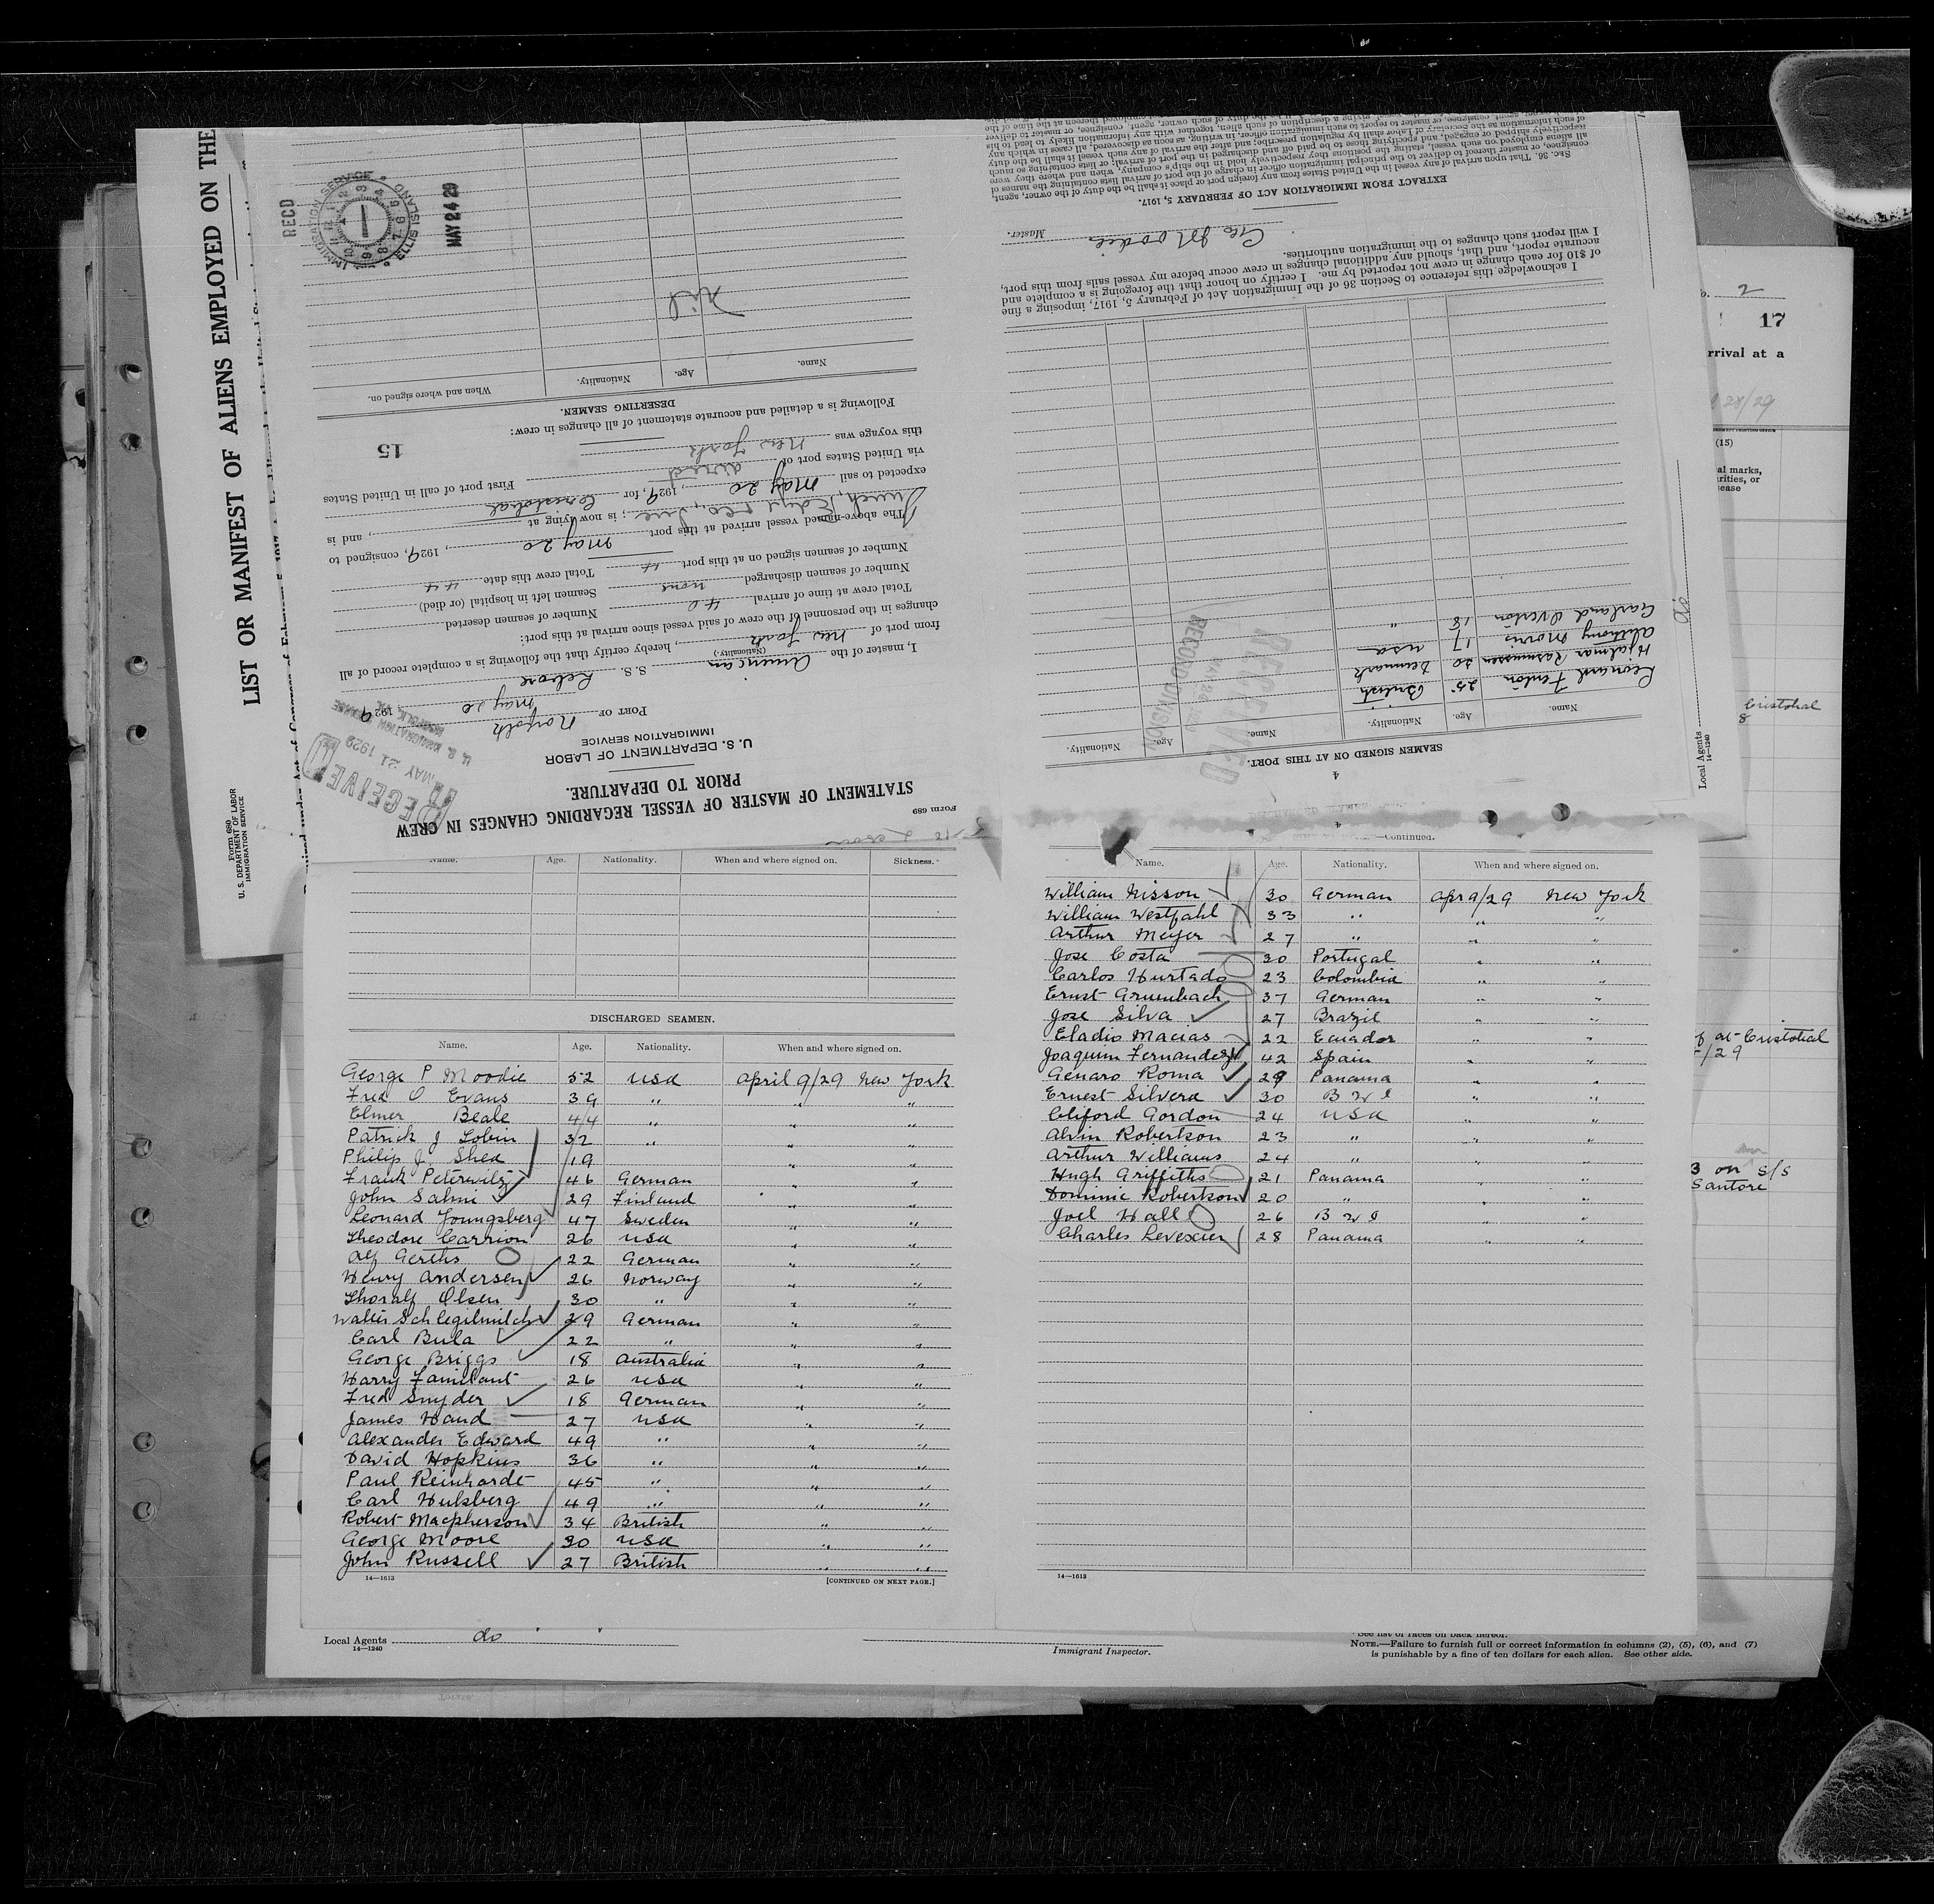 LIST OR MANIFEST OF ALIENS EMPLOYED ON THE
Form 680
U. S. DEPARTMENT OF LABOR
IMMIGRATION SERVICE
Form 689
STATEMENT OF MASTER OF VESSEL REGARDING CHANGES IN CREW
PRIOR TO DEPARTURE.
U. S. DEPARTMENT OF LABOR
IMMIGRATION SERVICE
RECEIVED
MAY 21 1929
PORT OF Norfolk
May 20, 1929
I, master of the American S. S. Lebore
(Nationality.)
from port of New York, hereby certify that the following is a complete record of all
changes in the personnel of the crew of said vessel since arrival at this port:
Total crew at time of arrival 40 Number of seamen deserted
Number of seamen discharged none Seamen left in hospital (or died)
Number of seamen signed on at this port 4 Total crew this date 44
The above-named vessel arrived at this port May 20, 1929, consigned to
; is now lying at , and is
expected to sail May 20, 1929, for Cristobal First port of call in United States
via United States port of direct
this voyage was New York
Following is a detailed and accurate statement of all changes in crew:
15
DESERTING SEAMEN.
Name. Age. Nationality. When and where signed on.
Nil
RECD
IMMIGRATION SERVICE
ELLIS ISLAND
MAY 24 29
4
SEAMEN SIGNED ON AT THIS PORT.
Name. Age. Nationality. Name. Age. Nationality.
Leonard Fenton 25 British
Hjalmar Rasmussen 20 Denmark
Anthony Morris 17 USA
Garland Overton 18 "
RECEIVED
RECORD DIVISION
I acknowledge this reference to Section 36 of the Immigration Act of February 5, 1917, imposing a fine
of $10 for each change in crew not reported by me. I certify on honor that the foregoing is a complete and
accurate report, and that, should any additional changes in crew occur before my vessel sails from this port,
I will report such changes to the immigration authorities.
Geo P Moodie Master.
EXTRACT FROM IMMIGRATION ACT OF FEBRUARY 5, 1917.
SEC. 36. That upon arrival of any vessel in the United States from any foreign port or place it shall be the duty of the owner, agent,
consignee, or master thereof to deliver to the principal immigration officer in charge of the port of arrival lists containing the names of
all aliens employed on such vessel, stating the positions they respectively hold in the ship's company, when and where they were
respectively shipped or engaged, and specifying those to be paid off and discharged in the port of arrival; or lists containing so much
of such information as the Secretary of Labor shall by regulation prescribe; and after the arrival of any such vessel it shall be the duty
Local Agents
14—1240
do
Name. Age. Nationality. When and where signed on. Sickness.
DISCHARGED SEAMEN.
Name. Age. Nationality. When and where signed on.
George P Moodie 52 USA April 9/29 New York
Fred O Evans 39 " " "
Elmer Beale 44 " " "
Patrick J Tobin 32 " " "
Philip J. Shea 19 " "
Frank Peterwitz 46 German " "
John Salmi 29 Finland " "
Leonard Youngsberg 47 Sweden " "
Theodore Carrion 26 USA " "
Alf Gerths 22 German " "
Henry Andersen 26 Norway " "
Thoralf Olsen 30 " " "
Walter Schlegilmilch 29 German " "
Carl Bula 22 " " "
George Briggs 18 Australia " "
Harry Faintant 26 USA " "
Fred Snyder 18 German " "
James Hand 27 USA " "
Alexander Edward 49 " " "
David Hopkins 36 " " "
Paul Reinhardt 45 " " "
Carl Hulsberg 49 " " "
Robert Macpherson 34 British " "
George Moore 30 USA " "
John Russell 27 British " "
14—1613
[CONTINUED ON NEXT PAGE.]
4
—Continued.
Name. Age. Nationality. When and where signed on.
William Nisson 30 German Apr 9/29 New York
William Westfahl 33 " " "
Arthur Meyer 27 " " "
Jose Costa 30 Portugal " "
Carlos Hurtado 23 Colombia " "
Ernst Grumbach 37 German " "
Jose Silva 27 Brazil " "
Eladio Macias 22 Ecuador " "
Joaquim Fernandez 42 Spain " "
Genaro Roma 29 Panama " "
Ernest Silvera 30 B W I " "
Cliford Gordon 24 USA " "
Alvin Robertson 23 " " "
Arthur Williams 24 " " "
Hugh Griffiths 21 Panama " "
Dominic Robertson 20 " " "
Joel Hall 26 B W I " "
Charles Levexier 28 Panama " "
14—1613
Local Agents do
14—1240
Immigrant Inspector.
* See list of races on back hereof.
NOTE.—Failure to furnish full or correct information in columns (2), (5), (6), and (7)
is punishable by a fine of ten dollars for each alien. See other side.
2
17
rrival at a
28/29
(15)
al marks,
rities, or
ease
Cristobal
8
at Cristobal
/29
3 on S/S
Santore